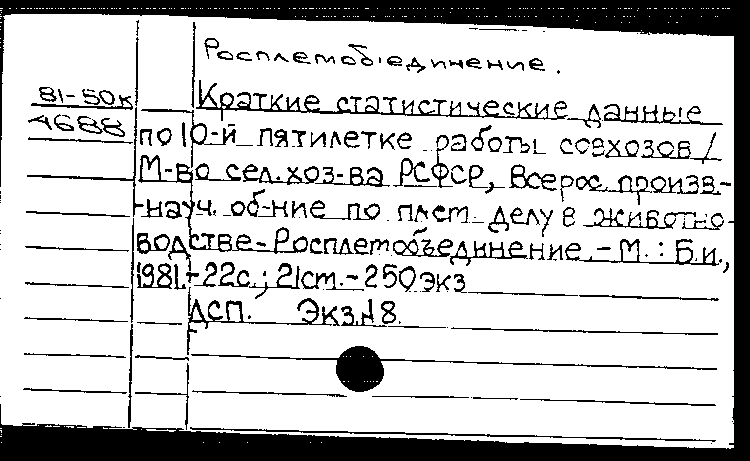 Росплемобъединение.
81-50к
4688
Краткие статистические данные
по 10-й пятилетке работы совхозов /
М-во сел. хоз-ва РСФСР, Всерос. произв.-
-науч. об-ние по плем. делу в животно-
водстве-Росплемобъединение.-М.: Б.и.,
1981.-22с.; 21см.-250экз
ДСП. Экз.№8.